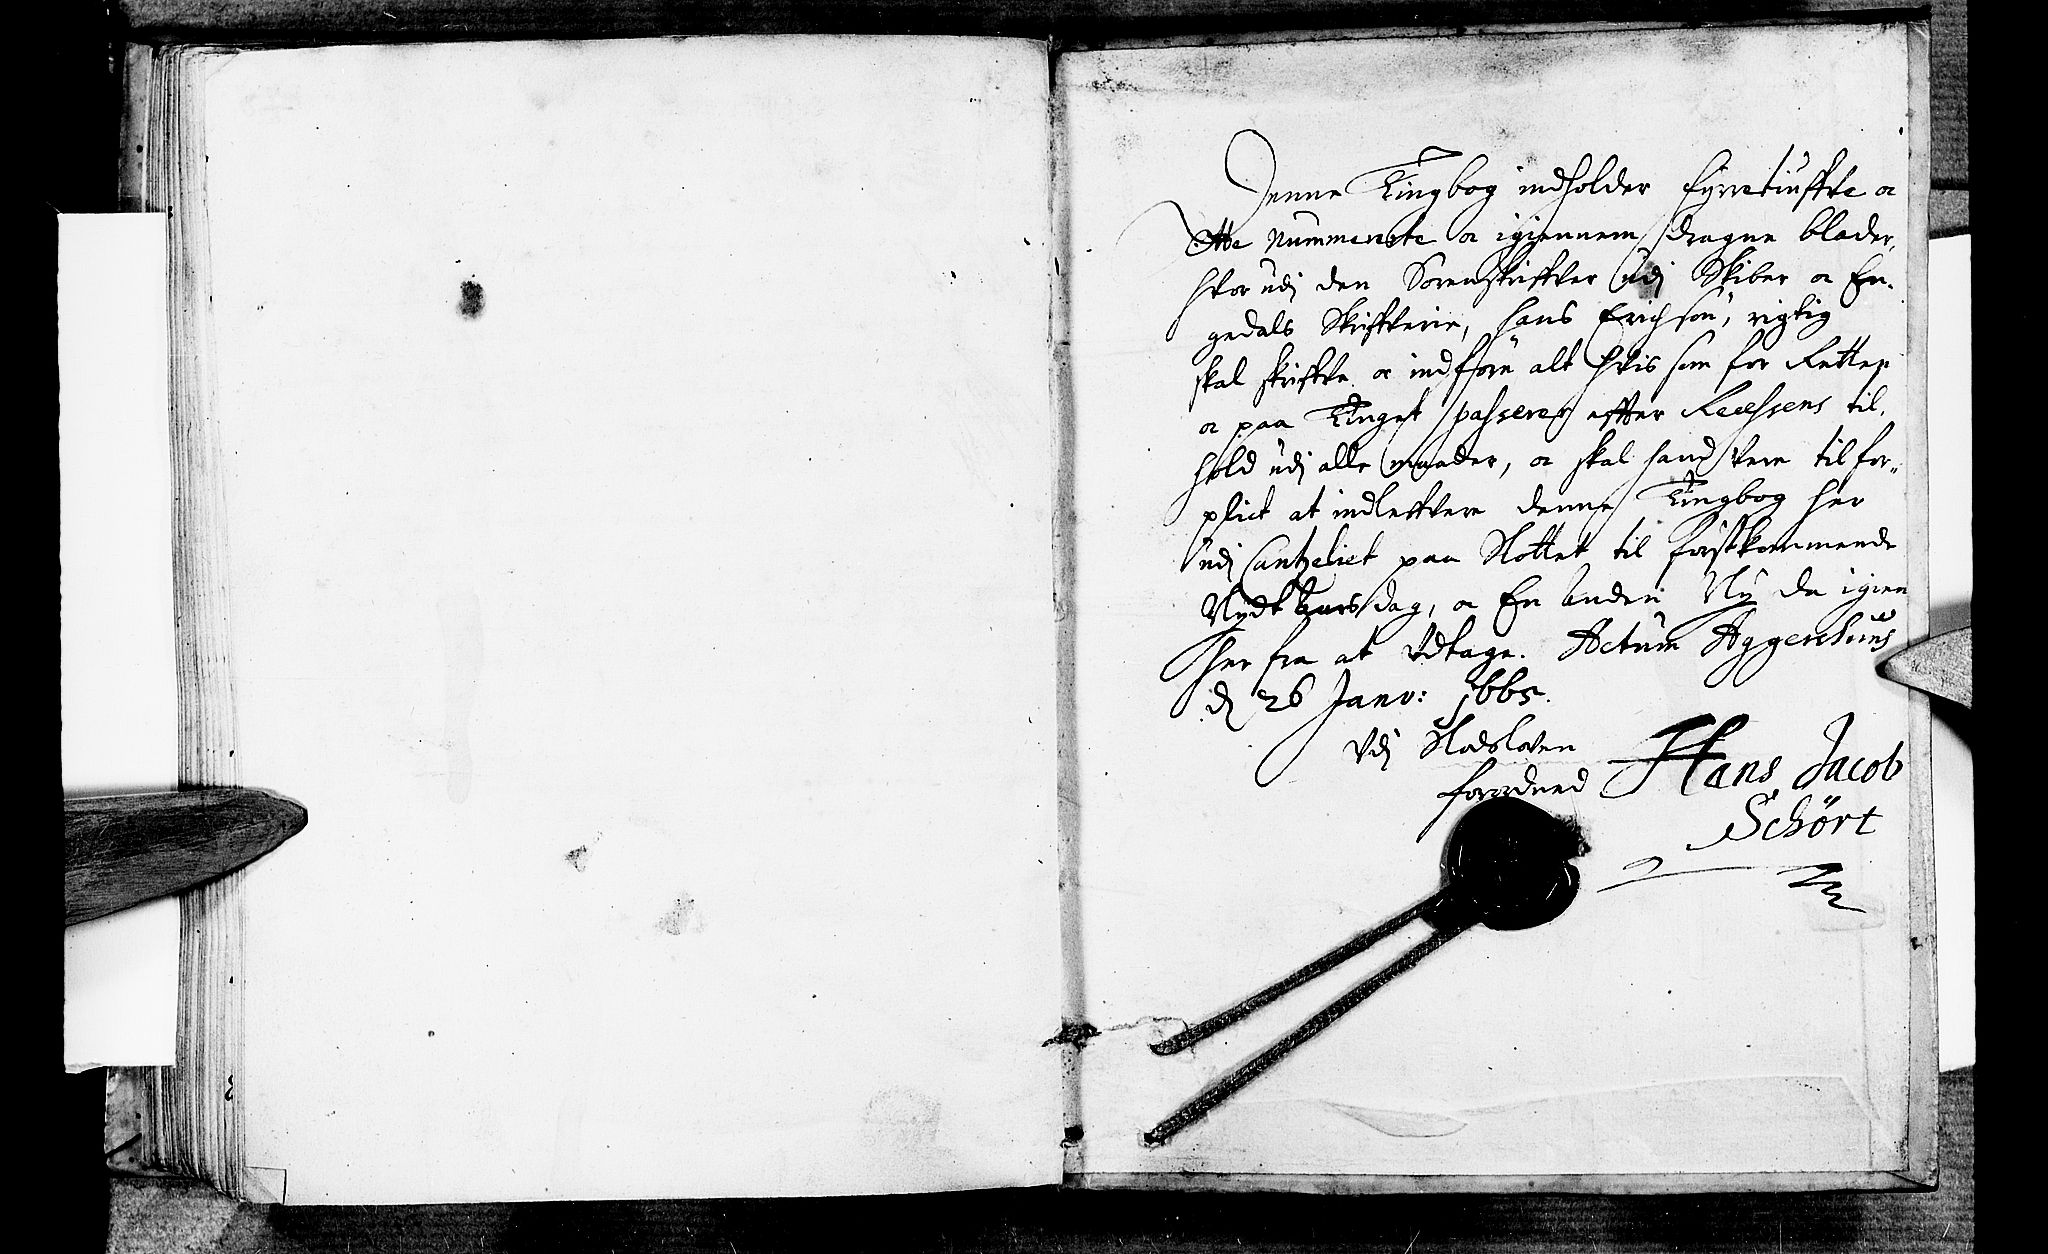 Denne Tingbog indholder Fyrretiufvfe oc
Otte Nummererte oc igiennem dragne blader,
hvor udj den Sorenskriffver udj Skiber oc En-
gedals Skriffverie, Hans Erichsøn, rigtig
skal skriffve oc indføre alt hvis som for Retten
oc paa Tinget passerer effter Recessens til,
hold udj alle maader, oc skal hand vere tilfor-
plict at indleffvere denne Tingbog her
udj Cantzeliet paa Slottet til førstkommende
Nydt Aars dag, oc En anden Ny da igien
her fra at udtage. Actum Aggershuus
dj 26 Janv: 1665.
Udj Slodsloven
forordned
Hans Jacob
Schört